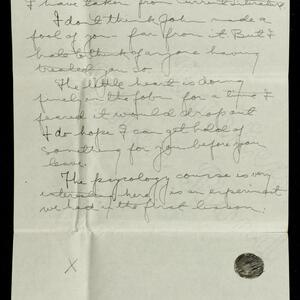 I have taken from current literature.
I don't think John made a
fool of you far from it. But I
hate to think of anyone having
treated you so
The little heart is doing
finely on the fob for a time I
feared it would drop out
I do hope I can get hold of
something for you before you
leave.
The psycology course is very
interesting here is an experiment
we had in the first lesson:
X